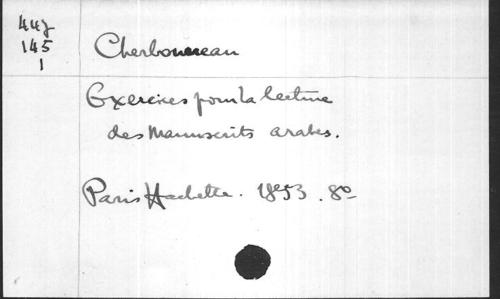 44g
145
1
Cherbonneau
Exercices pour la lecture
des Manuscrits arabes.
Paris Hachette. 1853. 8º